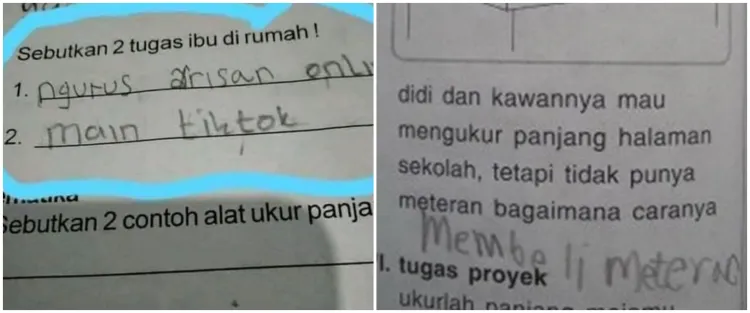 Sebutkan 2 tugas ibu di rumah !
1. ngurus arisan onli
2. main tiktok
Sebutkan 2 contoh alat ukur panja
didi dan kawannya mau
mengukur panjang halaman
sekolah, tetapi tidak punya
meteran bagaimana caranya
Membeli Meteran
I. tugas proyek
ukurlah panjang